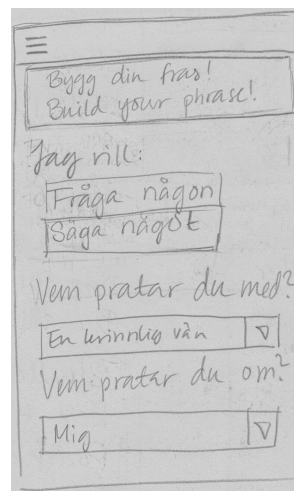 Bygg din fras!
Build your phrase!
Jag vill:
Fråga någon
Säga något
Vem pratar du med?
En kvinnlig vän
Vem pratar du om?
Mig